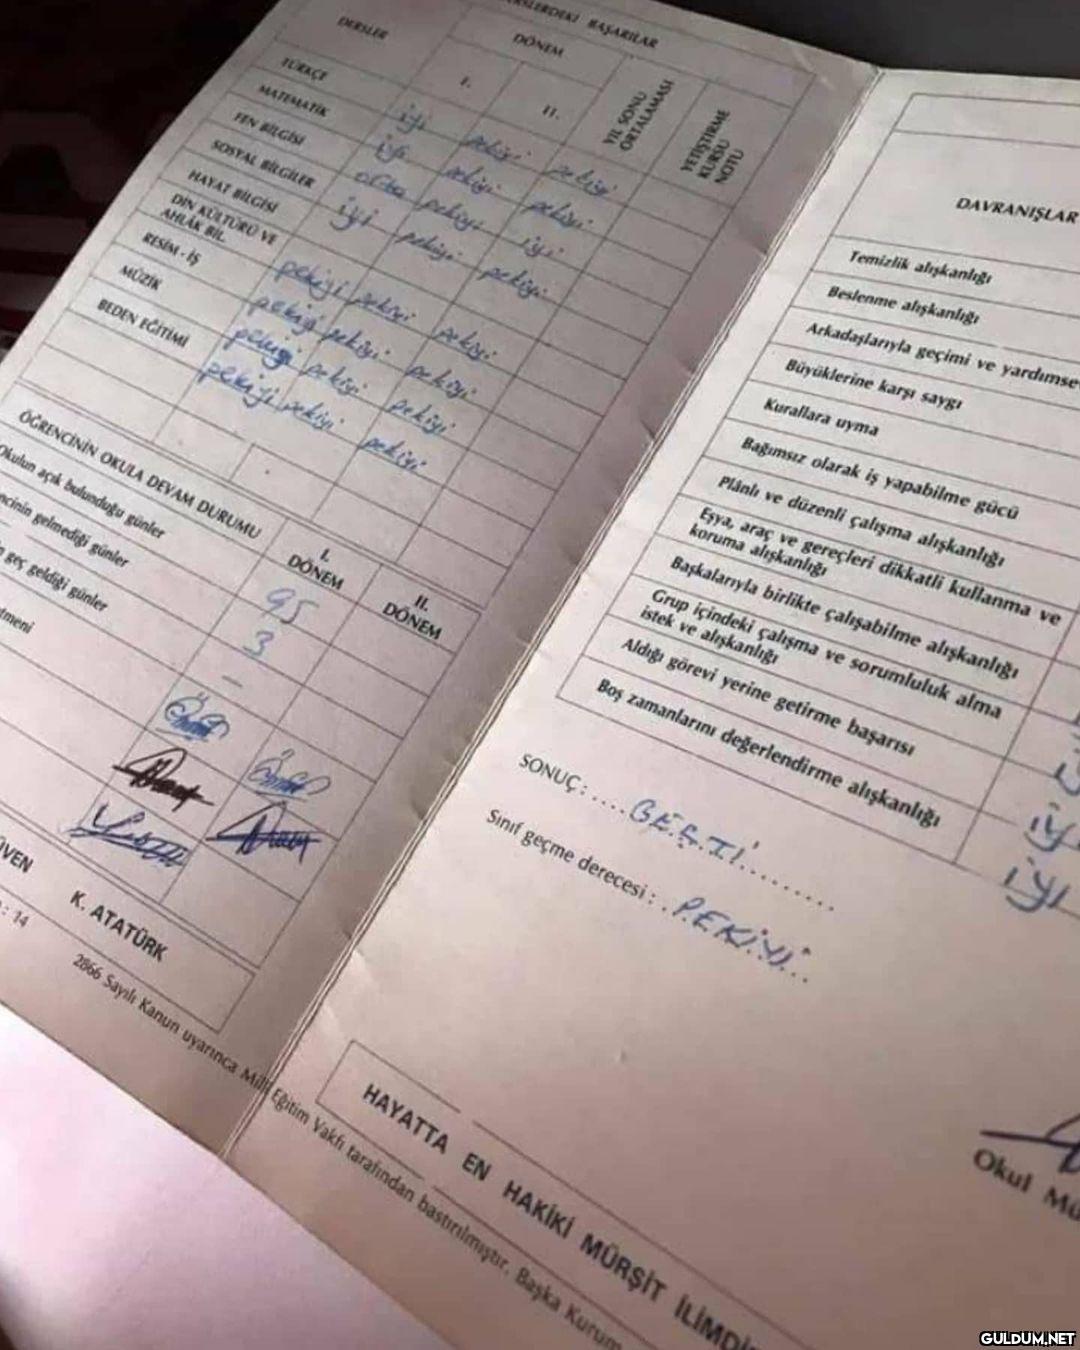 DERSLERDEKİ BAŞARILAR
DERSLER
DÖNEM
I.
II.
YIL SONU
ORTALAMASI
YETİŞTİRME
KURSU
NOTU
TÜRKÇE iyi pekiyi pekiyi
MATEMATİK iyi pekiyi pekiyi
FEN BİLGİSİ orta pekiyi iyi
SOSYAL BİLGİLER iyi pekiyi pekiyi
HAYAT BİLGİSİ
DİN KÜLTÜRÜ VE
AHLÂK BİL. pekiyi pekiyi pekiyi
RESİM - İŞ pekiyi pekiyi pekiyi
MÜZİK pekiyi pekiyi pekiyi
BEDEN EĞİTİMİ pekiyi pekiyi pekiyi
ÖĞRENCİNİN OKULA DEVAM DURUMU
I.
DÖNEM
II.
DÖNEM
Okulun açık bulunduğu günler 95
ncinin gelmediği günler 3
n geç geldiği günler —
tmeni
ÜVEN
K. ATATÜRK
: 14
2866 Sayılı Kanun uyarınca Milli Eğitim Vakfı tarafından bastırılmıştır. Başka Kurum
DAVRANIŞLAR
Temizlik alışkanlığı
Beslenme alışkanlığı
Arkadaşlarıyla geçimi ve yardımse
Büyüklerine karşı saygı
Kurallara uyma
Bağımsız olarak iş yapabilme gücü
Plânlı ve düzenli çalışma alışkanlığı
Eşya, araç ve gereçleri dikkatli kullanma ve
koruma alışkanlığı
Başkalarıyla birlikte çalışabilme alışkanlığı
Grup içindeki çalışma ve sorumluluk alma
istek ve alışkanlığı
Aldığı görevi yerine getirme başarısı iyi
Boş zamanlarını değerlendirme alışkanlığı iyi
SONUÇ:....BEŞTİ.........
Sınıf geçme derecesi:.PEKİYİ...
Okul Mü
HAYATTA EN HAKİKİ MÜRŞİT İLİMDİ
GULDUM.NET